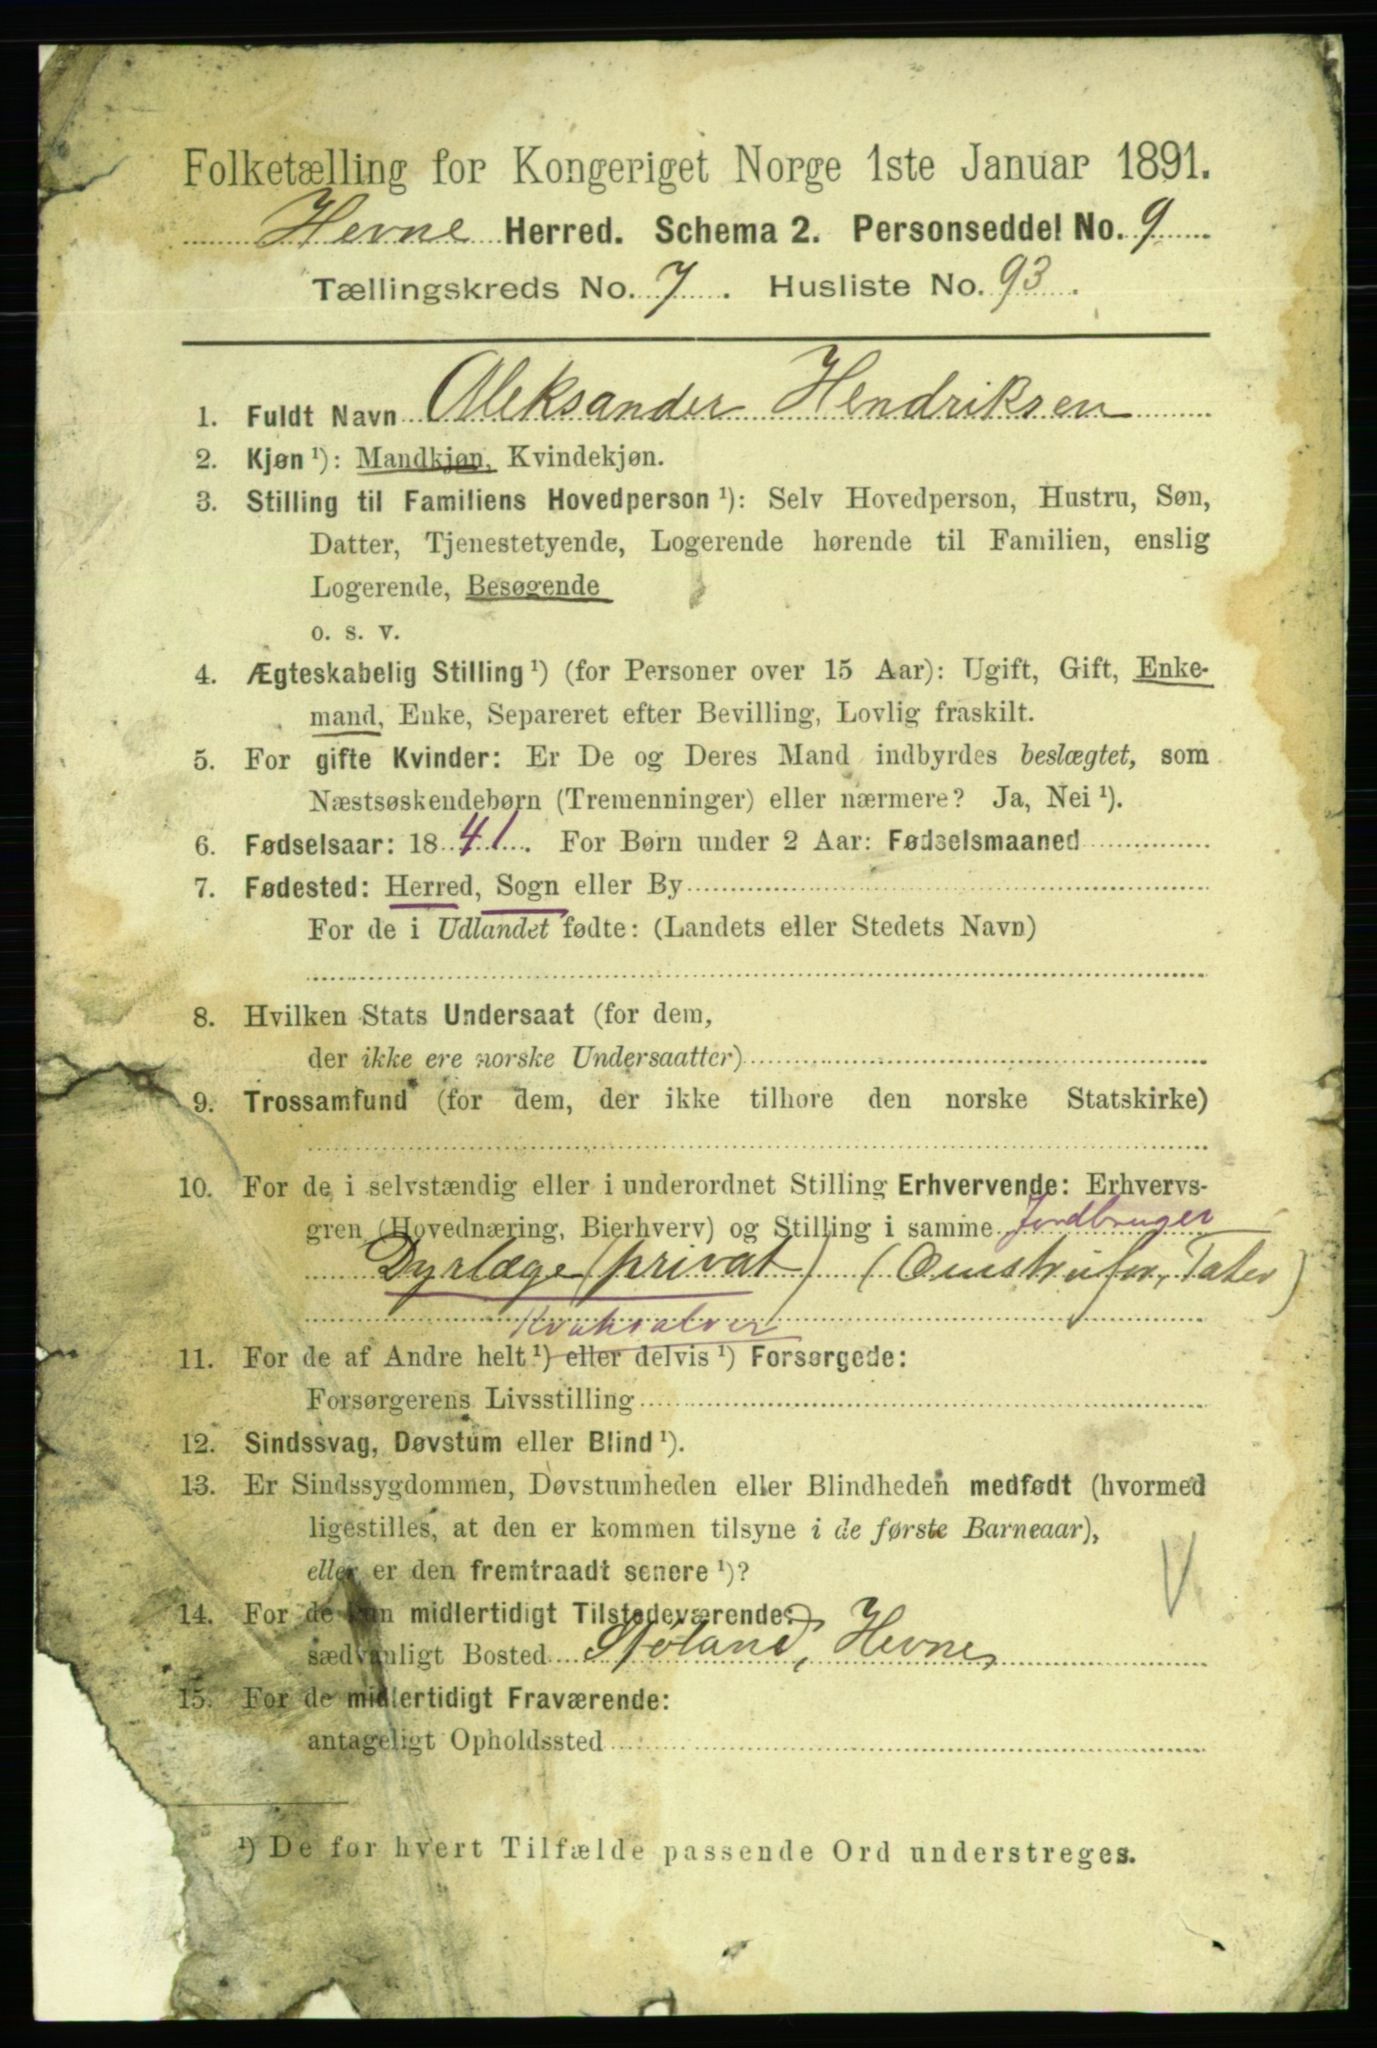 Folketælling for Kongeriget Norge 1ste Januar 1891.
Hevne Herred. Schema 2. Personseddel No. 9
Tællingskreds No. 7. Husliste No. 93.
1. Fuldt Navn Aleksander Hendriksen
2. Kjøn ¹): Mandkjøn, Kvindekjøn.
3. Stilling til Familiens Hovedperson ¹): Selv Hovedperson, Hustru, Søn,
Datter, Tjenestetyende, Logerende hørende til Familien, enslig
Logerende, Besøgende
o. s. v.
4. Ægteskabelig Stilling ¹) (for Personer over 15 Aar): Ugift, Gift, Enke-
mand, Enke, Separeret efter Bevilling, Lovlig fraskilt.
5. For gifte Kvinder: Er De og Deres Mand indbyrdes beslægtet, som
Næstsøskendebørn (Tremenninger) eller nærmere? Ja, Nei ¹).
6. Fødselsaar: 1841. For Børn under 2 Aar: Fødselsmaaned
7. Fødested: Herred, Sogn eller By
For de i Udlandet fødte: (Landets eller Stedets Navn)
8. Hvilken Stats Undersaat (for dem,
der ikke ere norske Undersaatter)
9. Trossamfund (for dem, der ikke tilhøre den norske Statskirke)
10. For de i selvstændig eller i underordnet Stilling Erhvervende: Erhvervs-
gren (Hovednæring, Bierhverv) og Stilling i samme Jordbruger
Dyrlæge (privat) (Omstrifer, Tater)
Kvaksalver
11. For de af Andre helt ¹) eller delvis ¹) Forsørgede:
Forsørgerens Livsstilling
12. Sindssvag, Døvstum eller Blind ¹).
13. Er Sindssygdommen, Døvstumheden eller Blindheden medfødt (hvormed
ligestilles, at den er kommen tilsyne i de første Barneaar),
eller er den fremtraadt senere ¹)?
14. For de kun midlertidigt Tilstedeværende:
sædvanligt Bosted Støland, Hevne
15. For de midlertidigt Fraværende:
antageligt Opholdssted
¹) De for hvert Tilfælde passende Ord understreges.